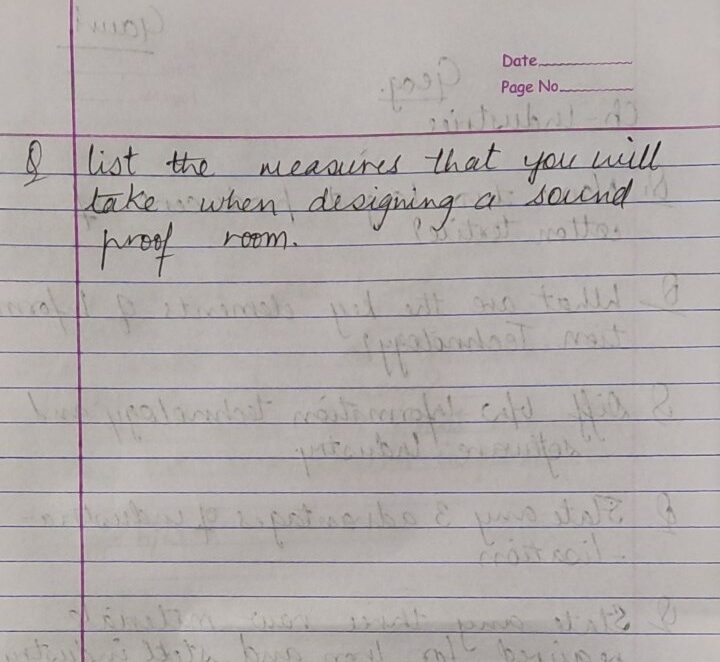 Date
Page No.
Q list the measures that you will
take when designing a sound
proof room.